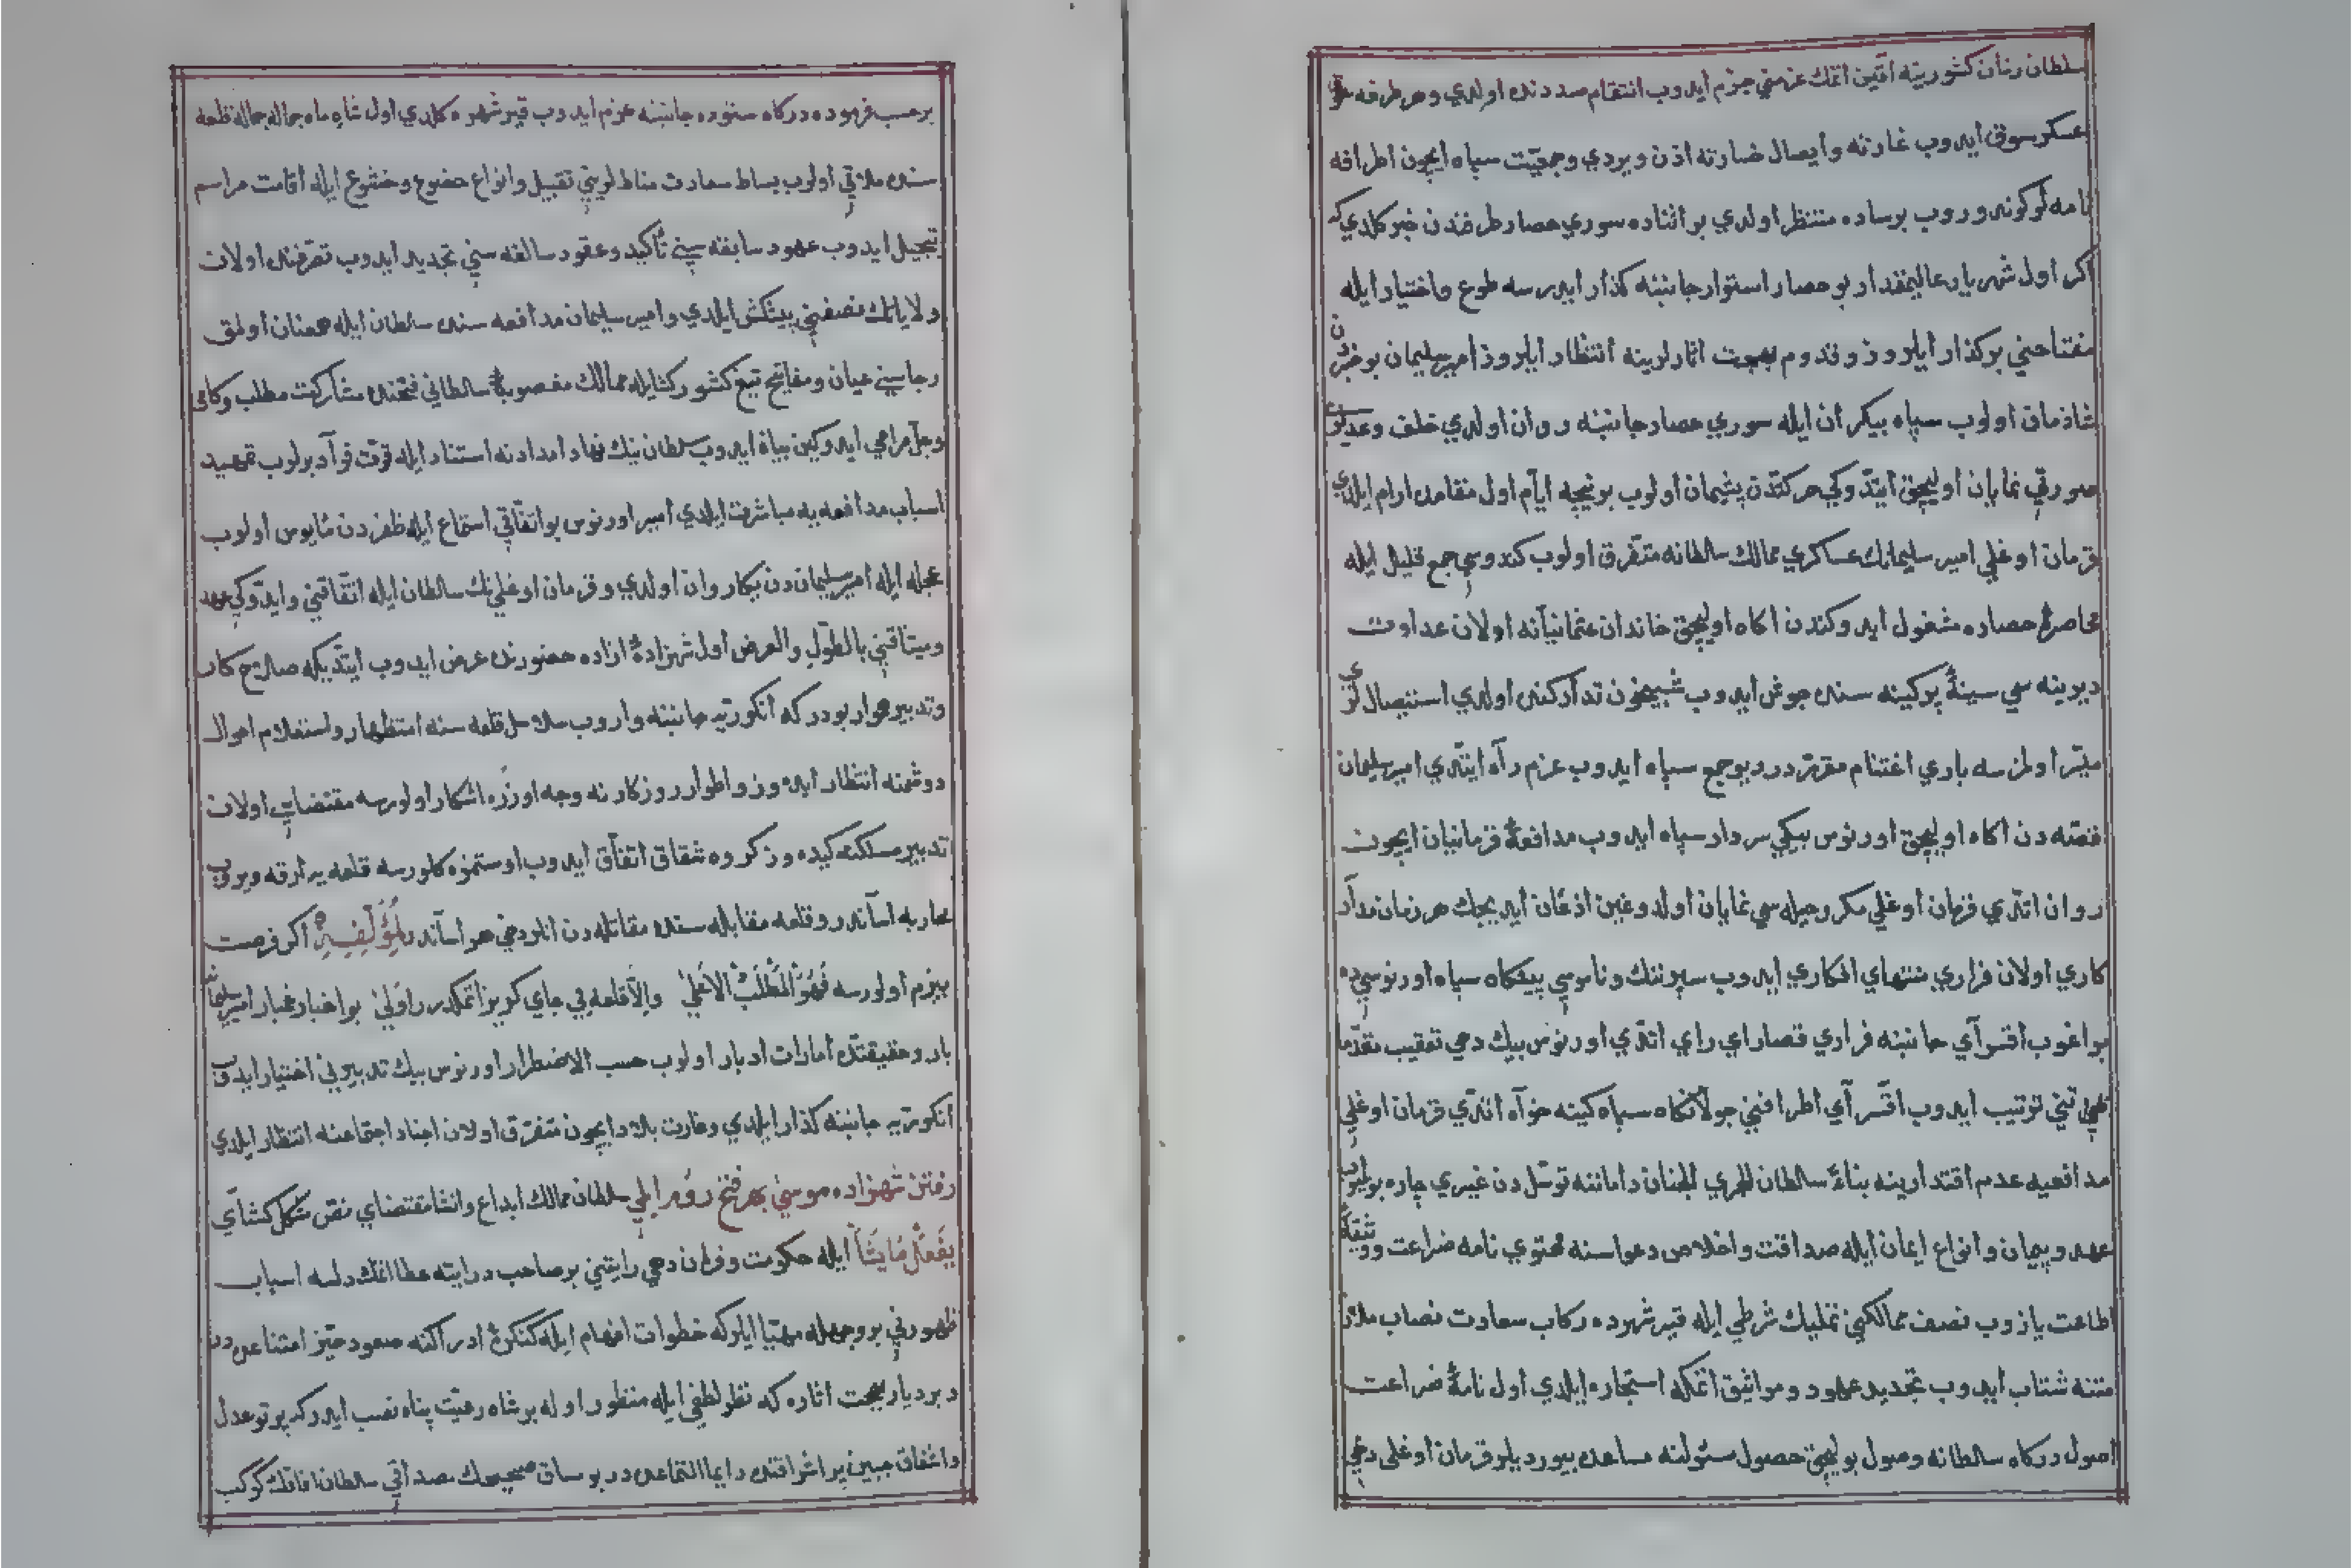 سلطان زمان كشورينه آقين اتمك عزمني جزم ايدوب انتقام صددنده اولدي وهر طرفه
عسكر سوق ايدوب غارته وايصال خسارته اذن ويردي وجمعيّت سپاه ايچون اطرافه
نامه لر كوندروب برساده منتظر اولدي بو اثناده سوري حصار طرفندن خبر كلدي كه
اكر اول شهريار عاليمقدار بو حصار استوار جانبنه كذار ايدرسه طوع واختيار ايله
مفتاحني بركذار ايلرز وقدوم بهجت اثارلرينه انتظار ايلرز امير سليمان بو خبردن
شاذمان اولوب سپاه بيكران ايله سوري حصار جانبنه روان اولدي خلف وعد
صورتي نمايان اوليجق ايتدوكي حركتدن پشيمان اولوب برنيچه ايّام اول مقامده ارام ايلدي
قرمان اوغلي امير سليمانك عساكري ممالك سلطانه متفرق اولوب كندوسي جمع قليل ايله
محاصرۀ حصاره مشغول ايدوكندن اكاه اوليجق خاندان عثمانيانه اولان عداوت
ديرينه سي سينۀ پركينه سنده جوش ايدوب شبيخون تداركنده اولدي استيصال لري
ميسّر اولمزسه باري اغتنام مقرّردر ديو جمع سپاه ايدوب عزم راه ايتدي امير سليمان
قصّه دن اكاه اوليجق اورنوس بيكي سردار سپاه ايدوب مدافعۀ قرمانيان ايچون
روان اتدي قرمان اوغلي مكر وحيله سي نمايان اولدوغين اذعان ايديجك هر زمان مدار
كاري اولان فراري منتهاي افكاري ايدوب سپر ننك وناموسي پيشكاه سپاه اورنوسيده
براغوب اقسراي جانبنه فراري قصاراي راي اتدي اورنوس بيك دخي تعقيب
ني ترتيب ايدوب اقسراي اطرافني جولانكاه سپاه كينه خواه اتدي قرمان اوغلي
مدافعيه عدم اقتدارينه بناءً سلطان دامانه توسّل دن غيري چاره بوليوب
عهد وپيمان وانواع ايمان ايله صداقت واخلاص دعواسنه محتوي نامه ضراعت
اطاعت يازوب نصف ممالكني تمليك شرطي ايله قيرشهرده ركاب سعادت نصاب
متنه شتاب ايدوب تجديد عهود ومواثيق اتمكه استجازه ايلدي اول نامۀ ضراعت
اصول دركاه سلطانه وصول بوليجق حصول مسئولنه مساعده بيورديلر قرمان اوغلي دخي
برحسب فرموده دركاه ستوده جانبنه عزم ايدوب قيرشهره كلدي اول شاه ماه جماله جماله قلعه
سنده ملاقي اولوب بساط سعادت مناطلريني تقبيل وانواع خضوع وخشوع ايله اقامت مراسم
تبجيل ايدوب عهود سابقه سني تأكيد وعقود سالفه سني تجديد ايدوب تصرفنده اولان
ولاياتك نصفني پيشكش ايلدي وامير سليمان مدافعه سنده سلطان ايله همعنان اولمق
رجاسني عيان ومفاتيح تيغ كشوركشا ايله ممالك مغصوبۀ سلطاني فتحنده مشاركت مطلب
وجلّ مرامي ايدوكين بيان ايدوب سلطان نيك نهاد امدادنه استناد ايله قوّت فوآد بولوب تمهيد
اسباب مدافعه يه مباشرت ايلدي امير اورنوس بو اتفاقي استماع ايله ظفردن مأيوس اولوب
عجله ايله امير سليماندن يكا روان اولدي وقرمان اوغلينك سلطان ايله اتفاقني وايتدوكي عهد
وميثاقني بالطول والعرض اول شهزادۀ ازاده حضورنده عرض ايدوب ايتديكه صلاح كار
وتدبير هموار بودر كه انكوريّه جانبنه واروب سلاسل قلعه سنه استظهار واستعلام احوال
دوشمنه انتظار ايده وز واطوار روزكار نه وجه اوزره اشكار اولورسه مقتضاسي اولان
تدبير مسلكنه كيده وز كروه شقاق اتفاق ايدوب اوستمزه كلورسه قلعه يه ارقه ويروب
محاربه اساندر وقلعه مقابله سنده مقاتله دن انلر دخي هراساندر لِمُؤَلِّفِهِ اكر فرصت
بيزم اولورسه فَهُوَ الْمَطْلَبُ الْاَعْلٰى والّا قلعه يي جاي كريز اتمكدر اولى بو اخبار غمبار امير سليمانه
بار وحقيقتده امارات ادبار اولوب حسب الاضطرار اورنوس بيك تدبيرني اختيار ايدوب
انكوريّه جانبنه كذار ايلدي وغارت بلاد ايچون متفرّق اولان اجناد اجتماعنه انتظار ايلدي
رفتن شهزاده موسي بهر فتح روم ايلي سلطان ممالك ابداع وانشا مقتضاي نصّ مشكل كشاي
يَفْعَلُ مَا يَشَاءُ ايله حكومت وفرمان دهي رايتني بر صاحب درايته عطا اتمك دلسه اسباب
ظهورني بر وجهله مهيّا ايلر كه خطوات افهام ايله كنكرۀ ادراكنه صعود حيّز امتناعده در
و بر ديار بهجت اثاره كه نظر لطفي ايله منظور اوله بر شاه رعيّت پناه نصب ايدر كه پرتو عدل
واشفاق جبين پر اشراقنده دايما التماعده در بو سياق صحيحك مصداقي سلطان افاقك كوكب